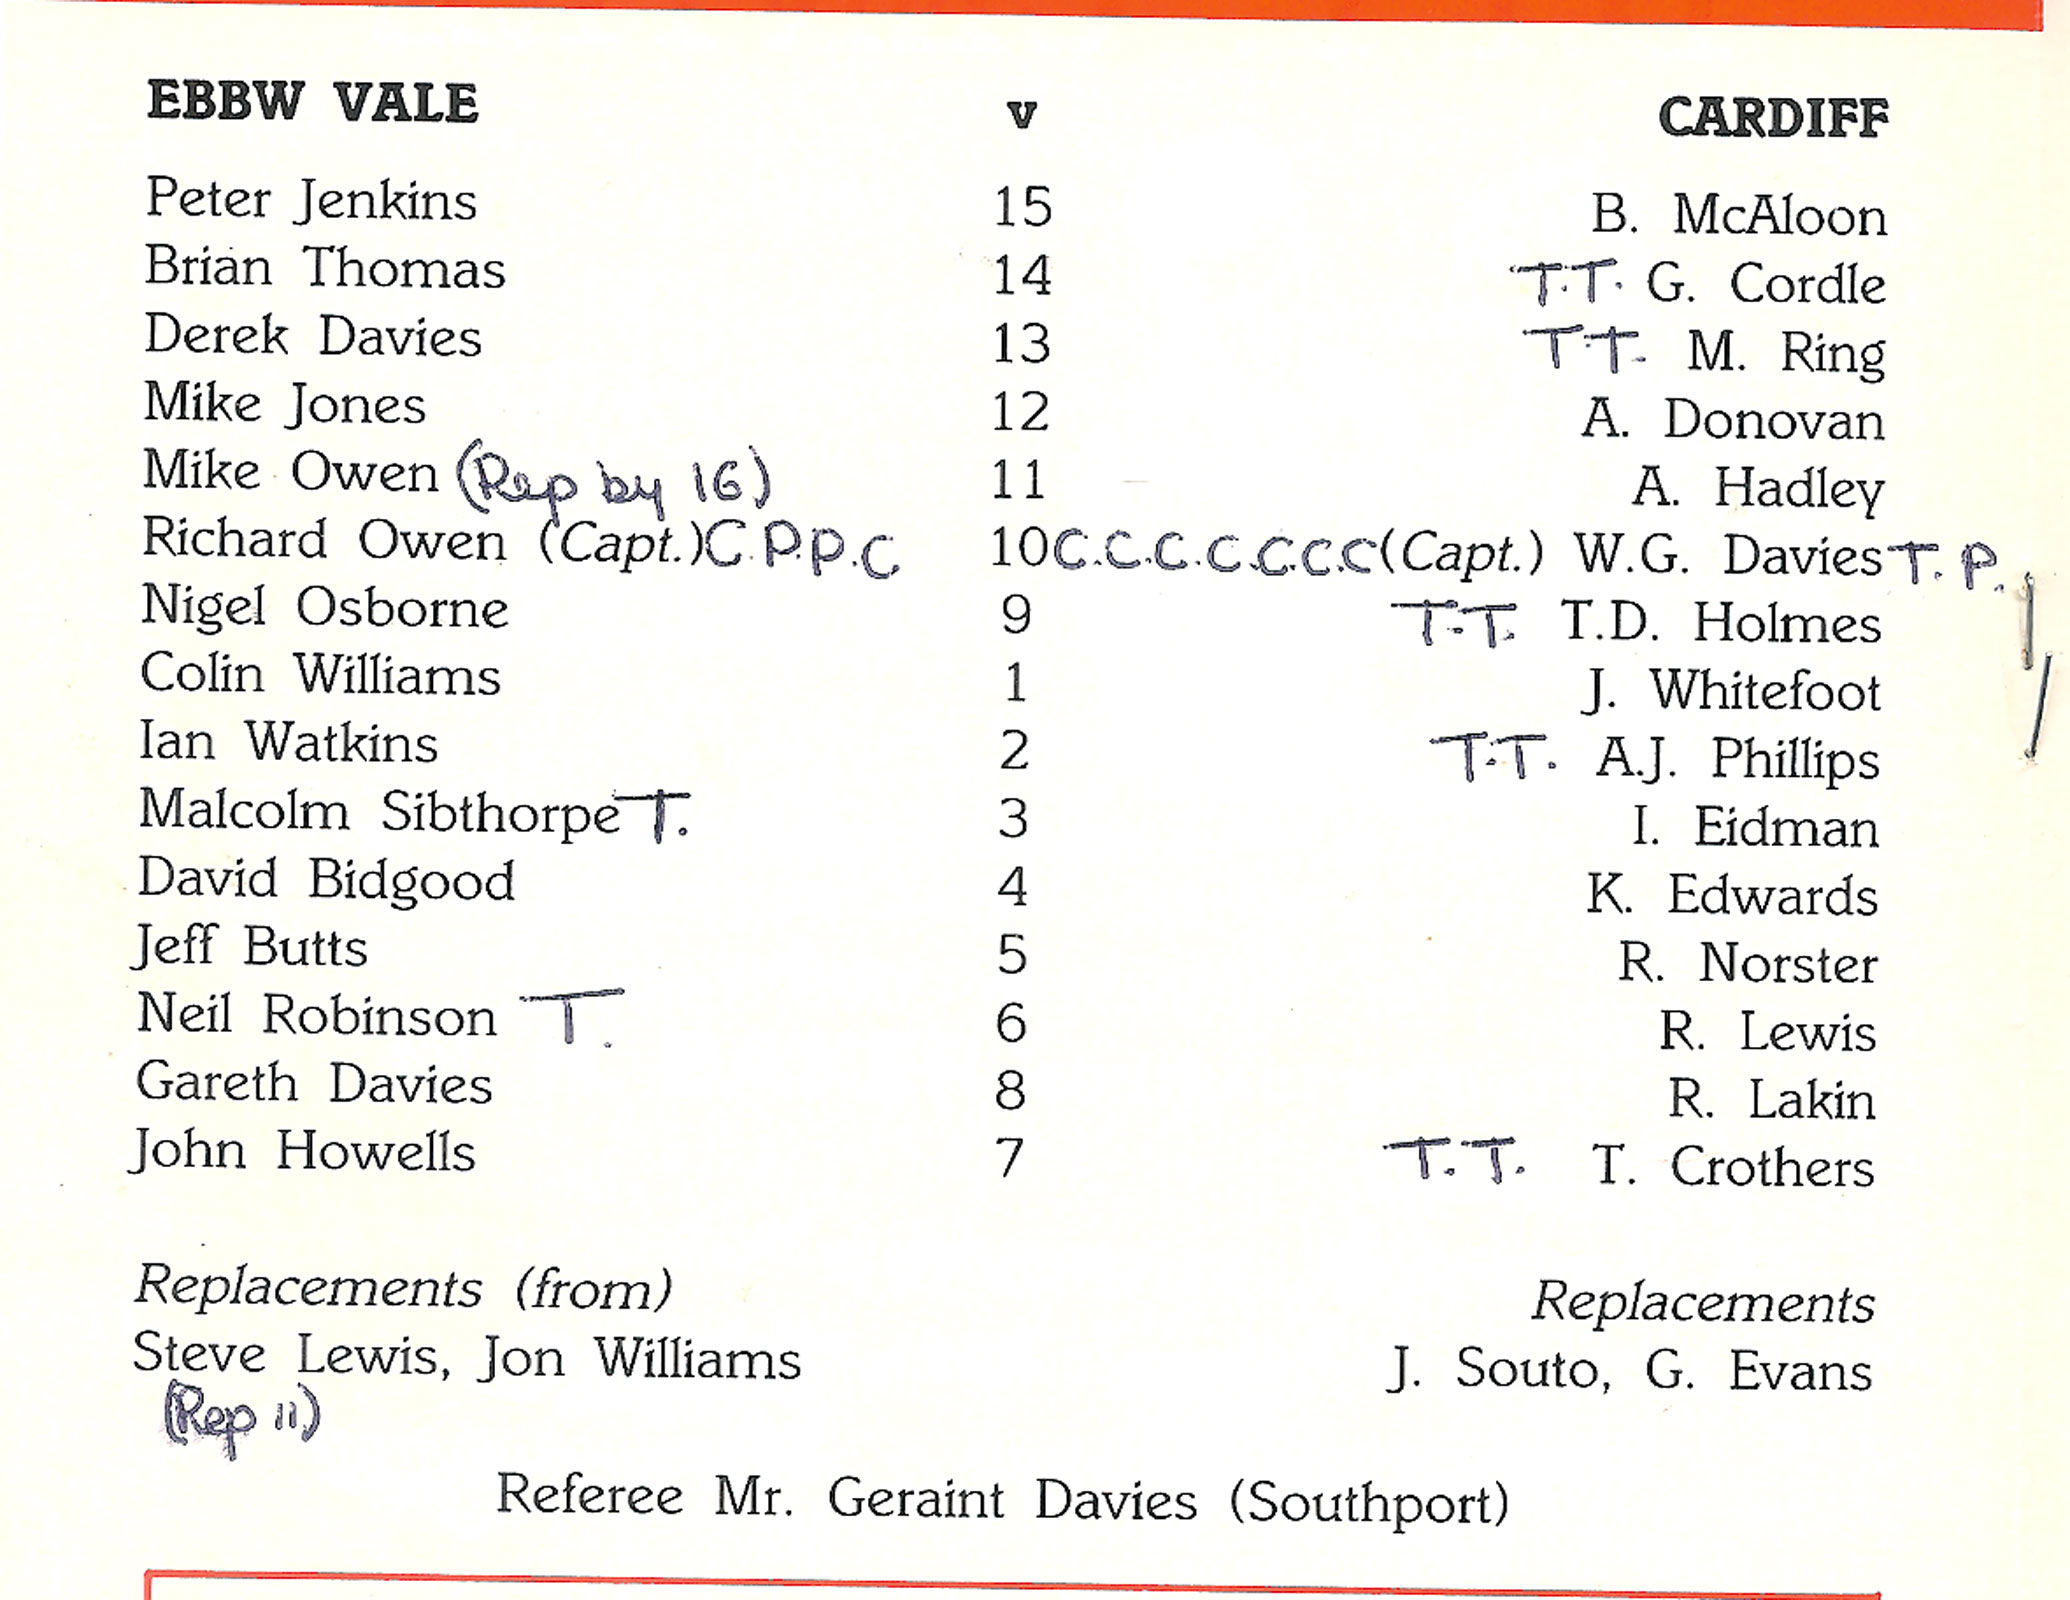 EBBW VALE v CARDIFF
Peter Jenkins 15 B. McAloon
Brian Thomas 14 T.T. G. Cordle
Derek Davies 13 T.T. M. Ring
Mike Jones 12 A. Donovan
Mike Owen (Rep by 16) 11 A. Hadley
Richard Owen (Capt.) C.P.P.C 10 C.C.C.C.C.C.C (Capt.) W.G. Davies T.P.
Nigel Osborne 9 T.T. T.D. Holmes
Colin Williams 1 J. Whitefoot
Ian Watkins 2 T.T. A.J. Phillips
Malcolm Sibthorpe T. 3 I. Eidman
David Bidgood 4 K. Edwards
Jeff Butts 5 R. Norster
Neil Robinson T. 6 R. Lewis
Gareth Davies 8 R. Lakin
John Howells 7 T.T. T. Crothers
Replacements (from) Replacements
Steve Lewis, Jon Williams J. Souto, G. Evans
(Rep 11)
Referee Mr. Geraint Davies (Southport)